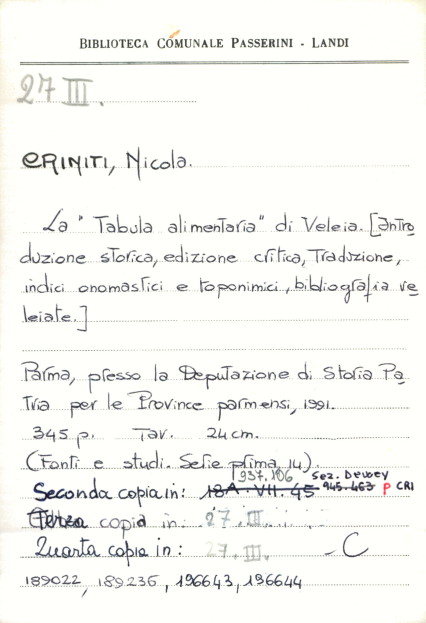 BIBLIOTECA COMUNALE PASSERINI - LANDI
27 III.
CRINITI, Nicola.
La "Tabula alimentaria" di Veleia. [Intro
duzione storica, edizione critica, Traduzione,
indici onomastici e toponimici, bibliografia ve
leiate.]
Parma, presso la Deputazione di Storia Pa
tria per le Province parmensi, 1991.
345 p. Tav. 24 cm.
(Fonti e studi. Serie prima, 14).
937.106 Sez. Dewey
Seconda copia in: 18A. VII. 45 945.463 P CRI
Terza copia in: 27. III.
Quarta copia in: 27. III. - C
189022, 189236, 196643, 196644